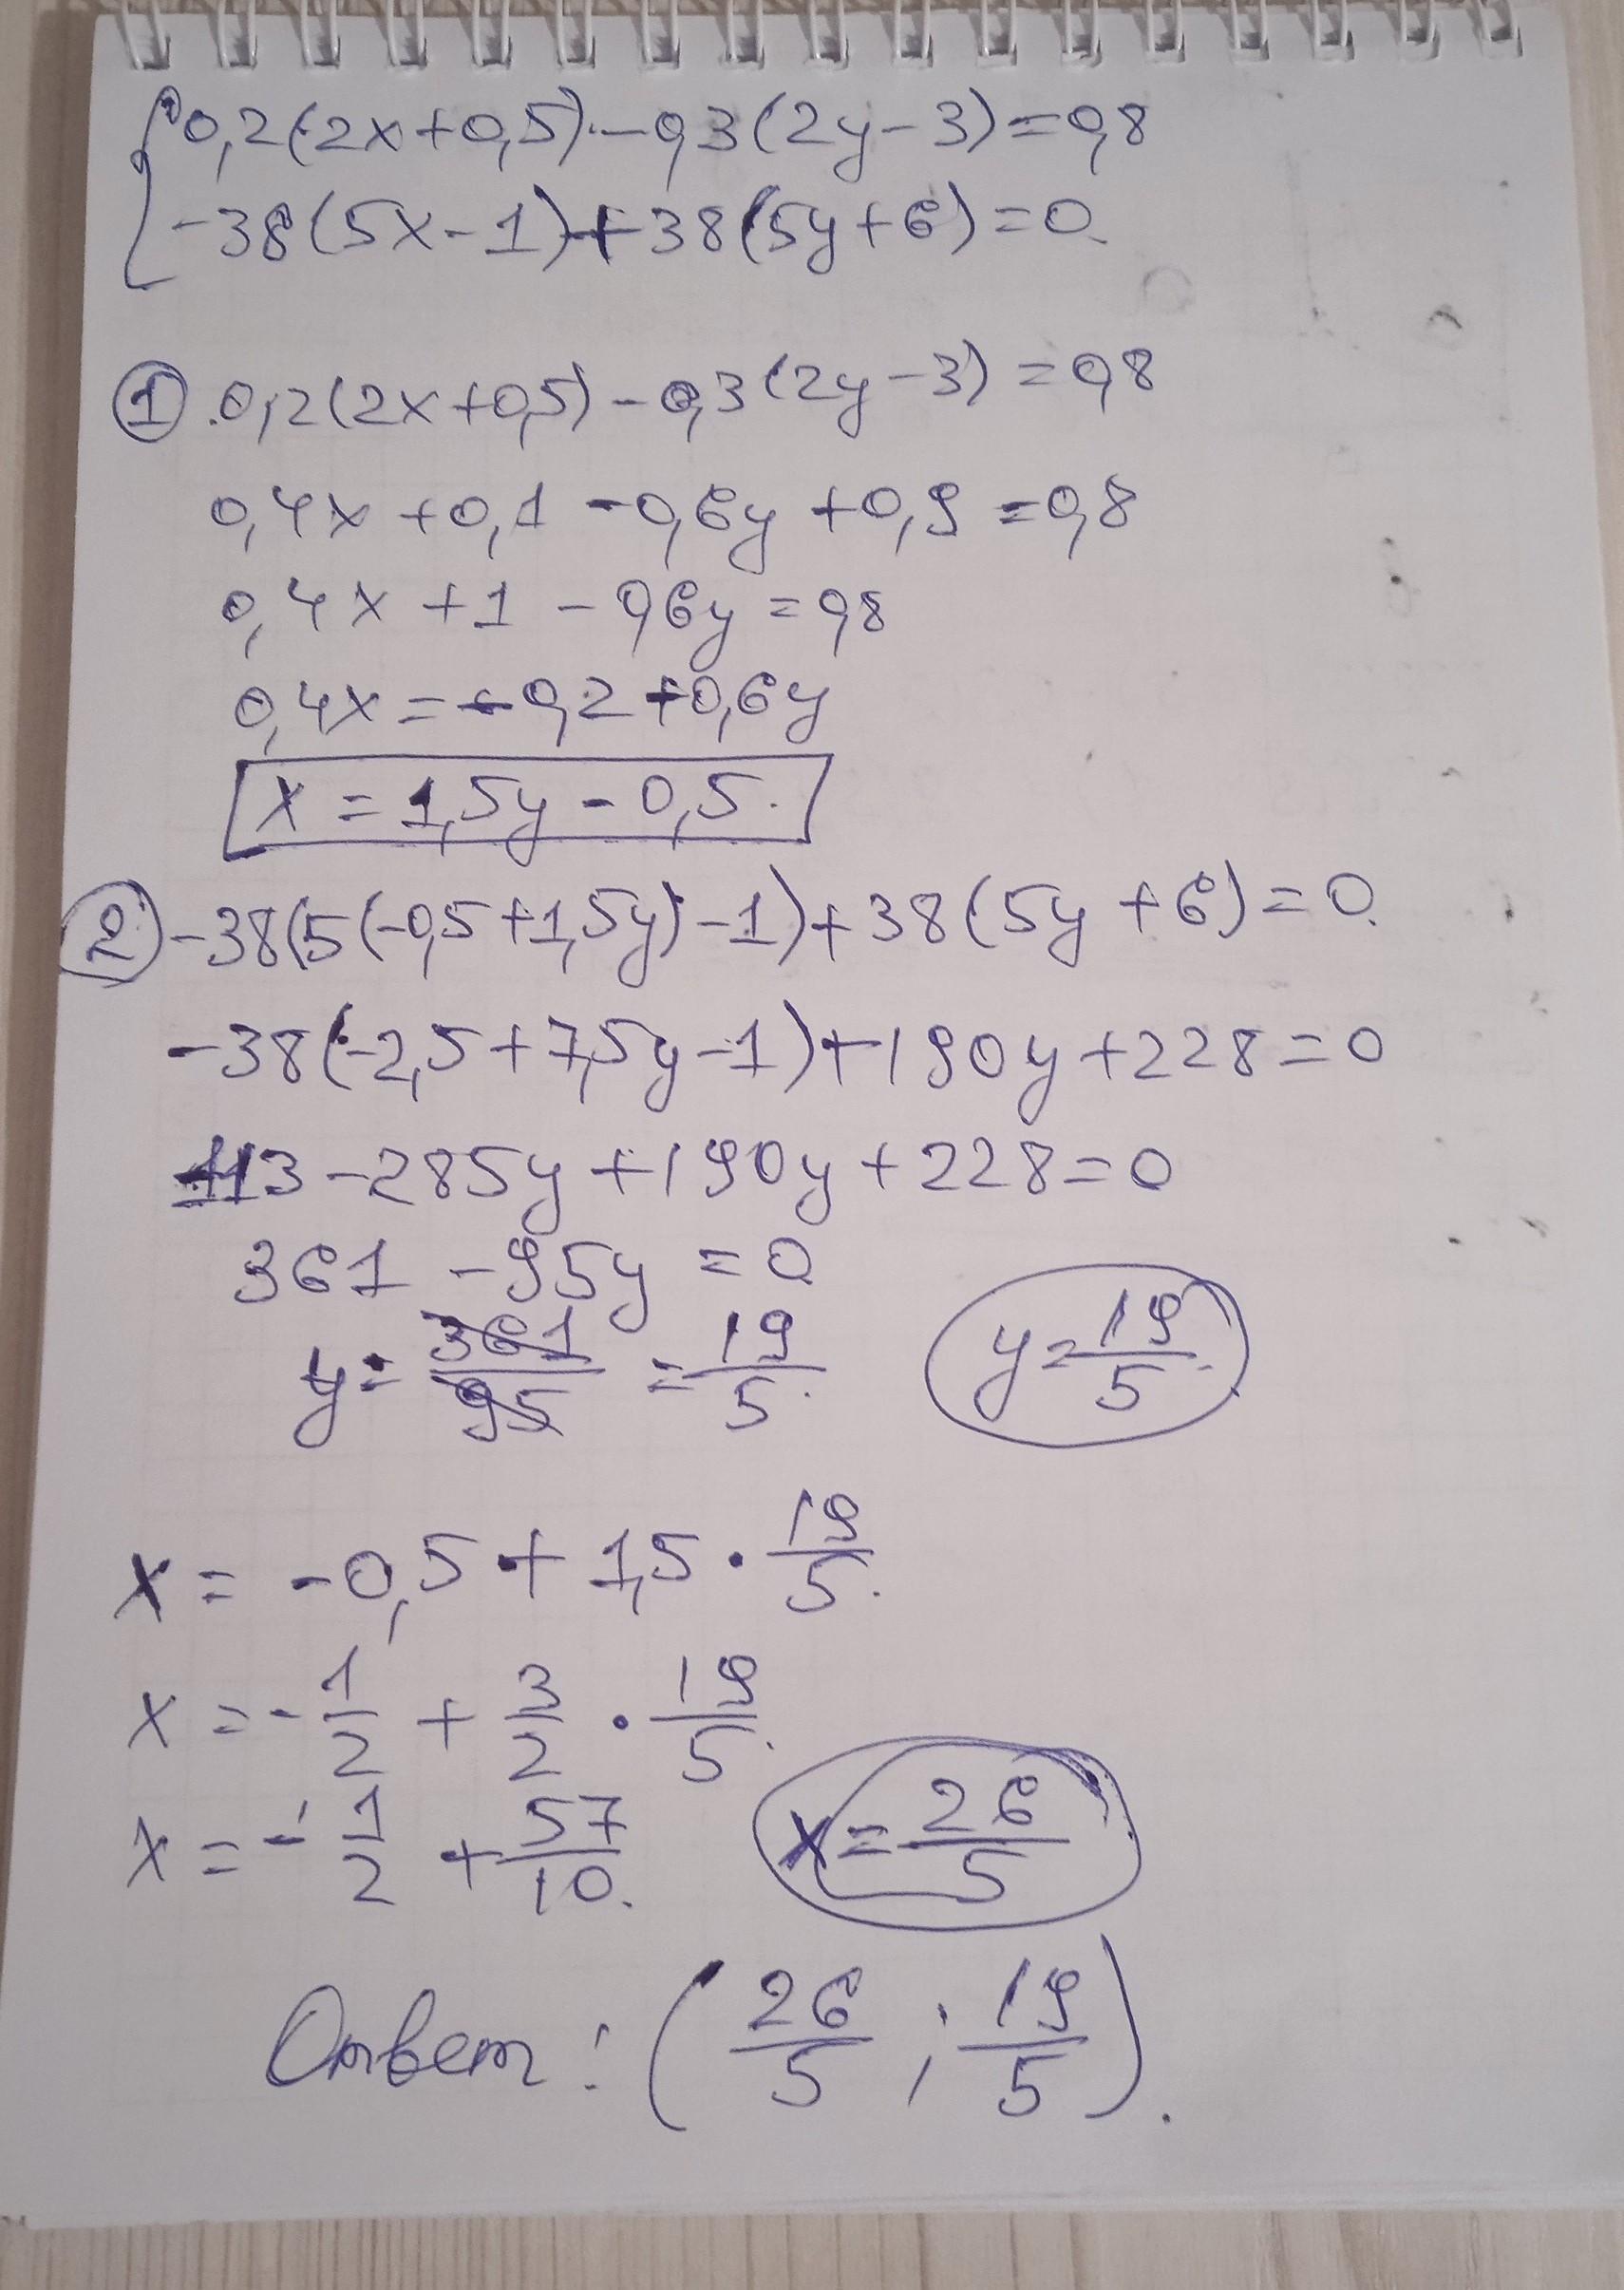 0,2(2x+0,5)-0,3(2y-3)=0,8
-38(5x-1)+38(5y+6)=0.
① 0,2(2x+0,5)-0,3(2y-3)=0,8
0,4x+0,1-0,6y+0,9=0,8
0,4x+1-0,6y=0,8
0,4x=-0,2+0,6y
x=1,5y-0,5.
② -38(5(-0,5+1,5y)-1)+38(5y+6)=0.
-38(-2,5+7,5y-1)+190y+228=0
-285y+190y+228=0
361-95y=0
y=361/95=19/5. y=19/5.
x=-0,5+1,5·19/5.
x=-1/2+3/2·19/5.
x=-1/2+57/10. x=26/5
Ответ: (26/5; 19/5).